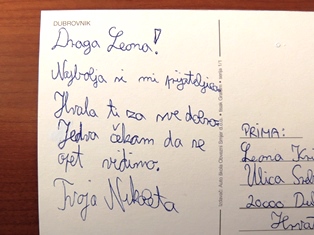 DUBROVNIK
Draga Leona!
Najbolja si mi prijateljica.
Hvala ti za sve dobro.
Jedva čekam da se
opet vidimo.
Tvoja Nikoleta
PRIMA:
Leona
Ulica
20000